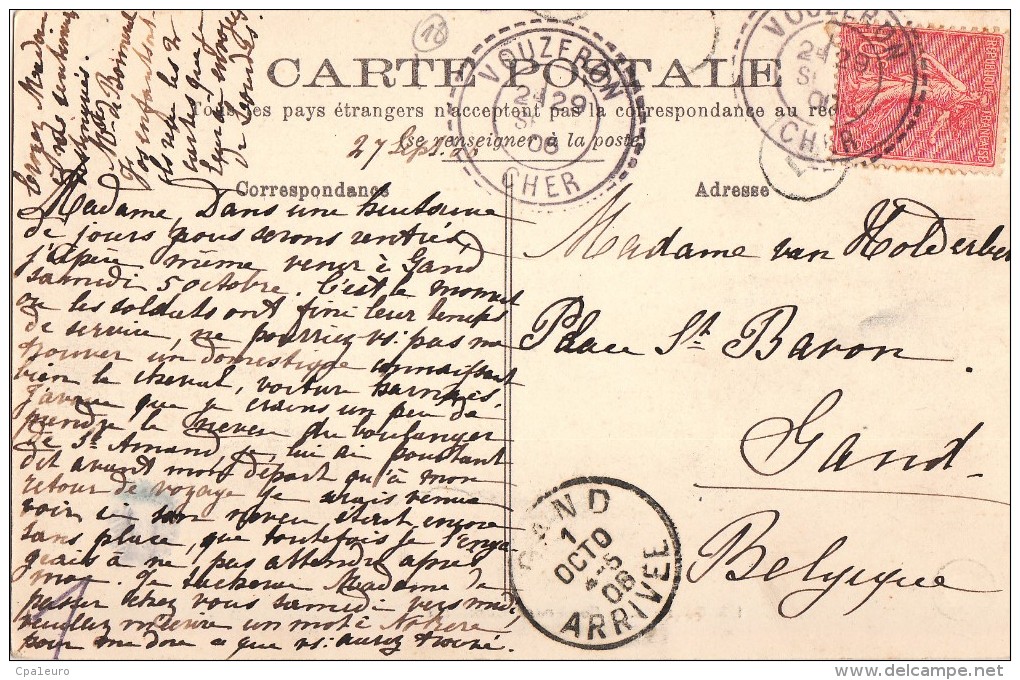 CARTE POSTALE
Tous les pays étrangers n'acceptent pas la correspondance au recto
(se renseigner à la poste)
27 Sept.
Correspondance
Madame, Dans une huitaine
de jours nous serons rentrés,
j'espère même venir à Gand
samedi 5 octobre. C'est le moment
où les soldats ont fini leur temps
de service, ne pourriez vs. pas me
trouver un domestique connaissant
bien le cheval, voiture harnais.
J'avoue que je crains un peu de
prendre le neveu du boulanger
de St Amand je lui ai pourtant
dit avant mon départ qu'à mon
retour de voyage je serais venue
voir si son neveu était encore
sans place, que toutefois je l'enga-
geais à ne pas attendre après
moi. Je tacherai Madame de
passer chez vous samedi vers midi,
veuillez m'écrire un mot à
pour me dire ce que vs. aurez trouvé.
Croyez Madame
à mes sentiments
Mme de
les 2
cartes
de
Adresse
Madame van Holderbe
Place St Bavon
Gand
Belgique
VOUZERON
29
06
CHER
VOUZERON
29
CHER
GAND
1
OCTO
06
ARRIVEL
18
10
Cpaleuro
www.delcampe.net